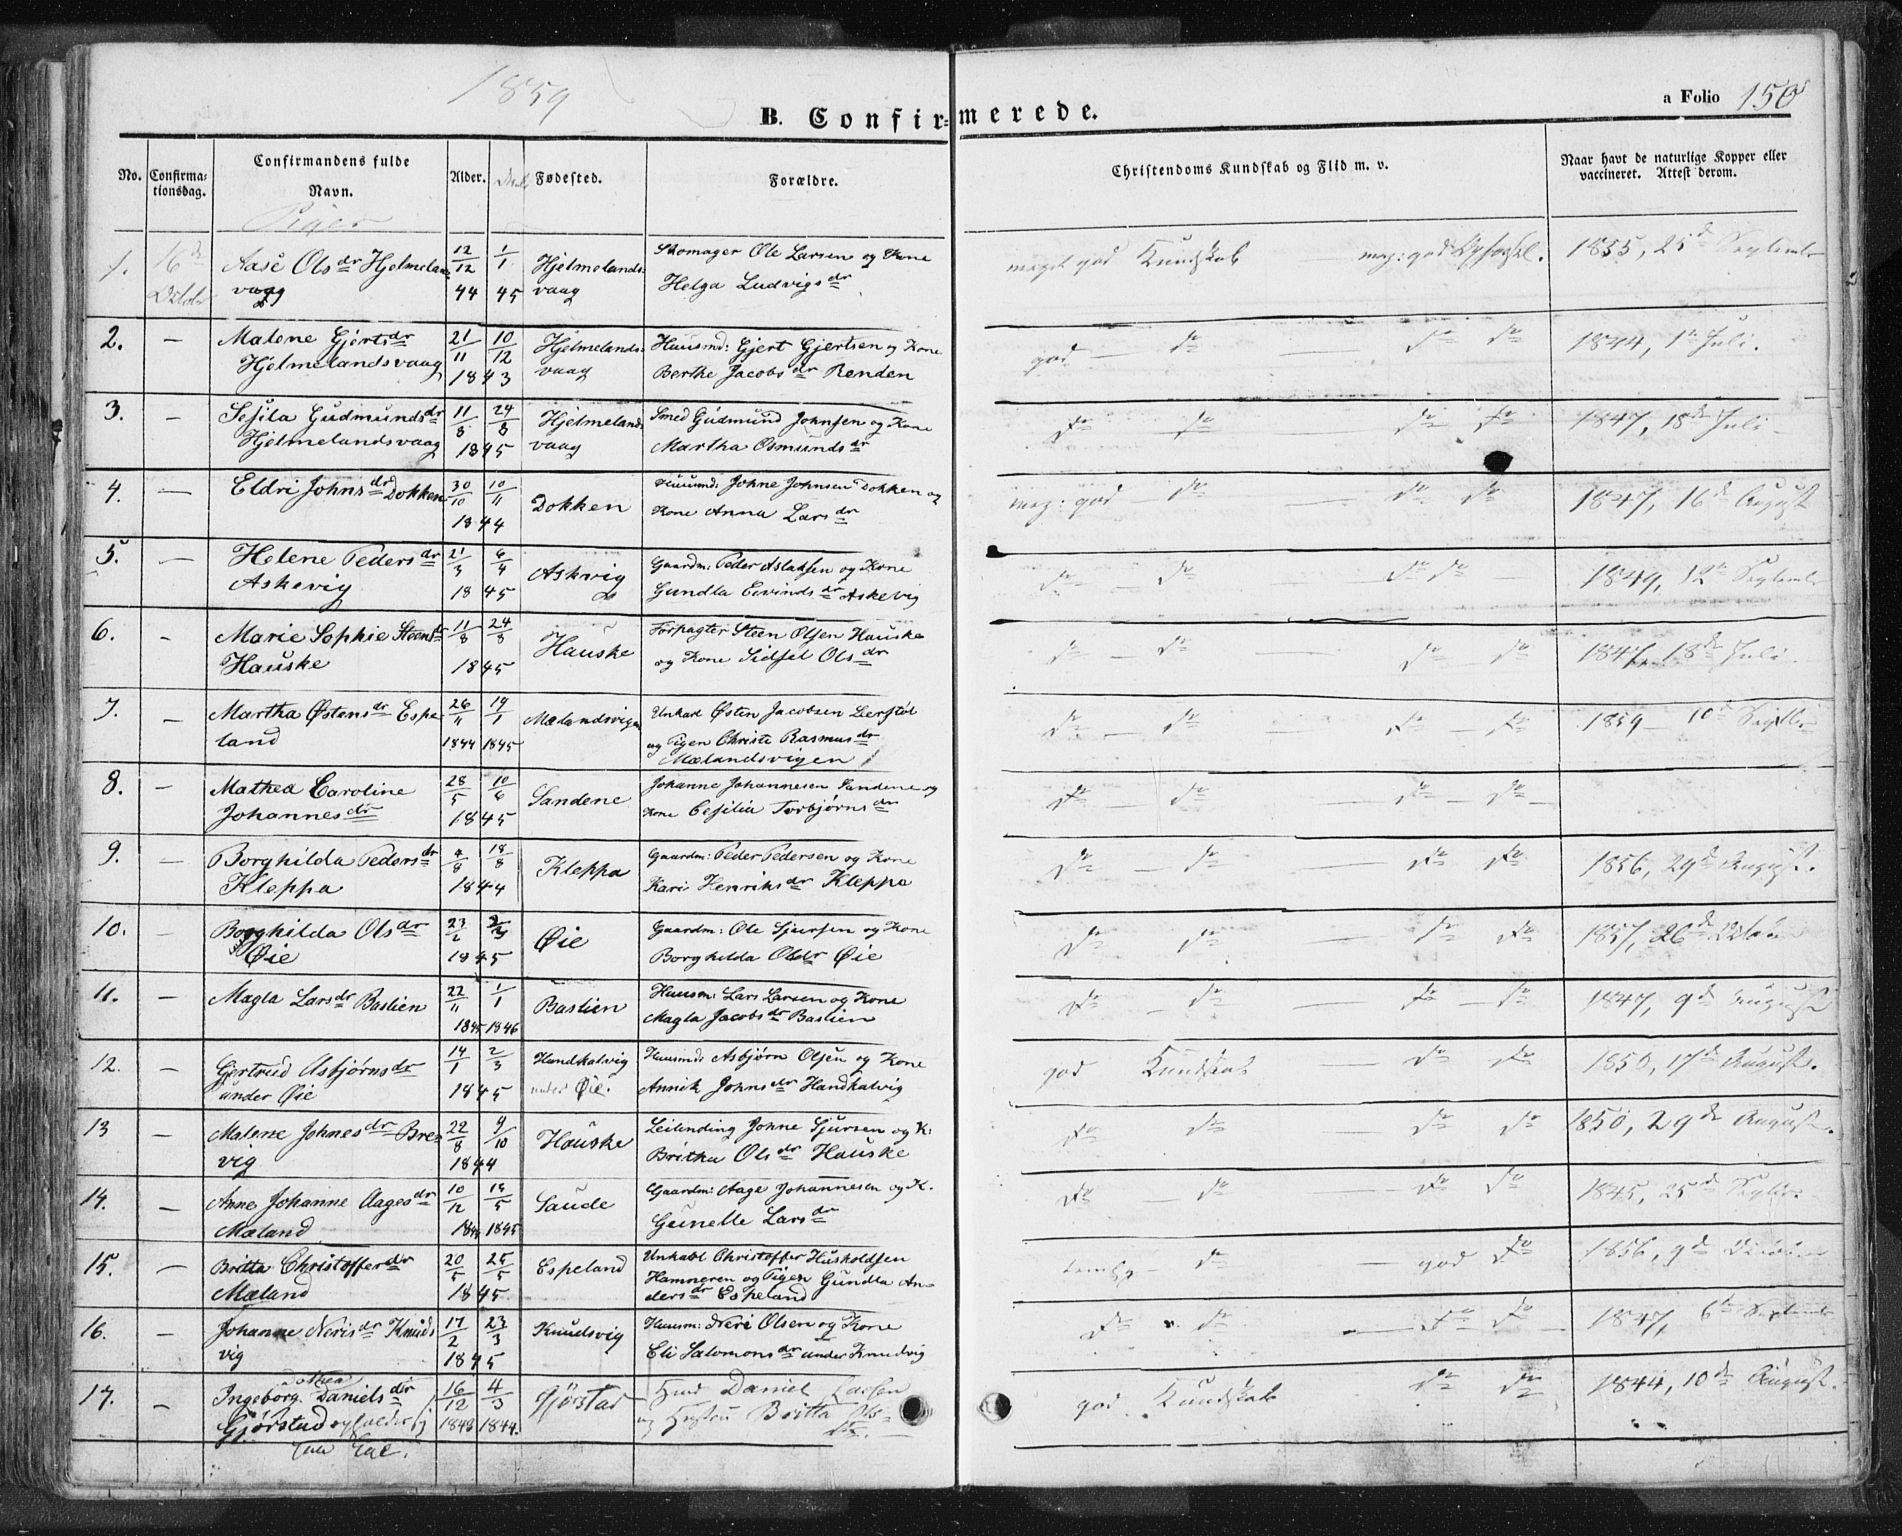 1859
B. Confirmerede.
a Folio 150
No. Confirmationsdag. Confirmandens fulde Navn. Alder. Fødested. Forældre. Christendoms Kundskab og Flid m. v. Naar havt de naturlige Kopper eller vaccineret. Attest derom.
Piger
1. 16de Aase Olsdr Hjelmelands 12/12 1/1 Hjelmelands Skomager Ole Larsen og Kone meget god Kundskab meg: god 1855, 25de Septembr
Octobr vaag 44 45 vaag Helga Ludvigsdr
2. — Malene Gjertsdr 21/11 10/12 Hjelmelands Huusmd: Gjert Gjertsen og Kone god — do — do do 1844, 1te Juli.
Hjelmelandsvaag 1843 vaag Berthe Jacobsdr Renden
3. — Sesila Gudmundsdr 11/8 24/8 Hjelmelands Smed Gudmund Johnsen og Kone do do — do do 1847, 18de Juli
Hjelmelandsvaag 1845 vaag Martha Osmundsdr
4. — Eldri Johnsdr Dokken 30/10 10/11 Dokken Huusmd: Johne Johnsen Dokken og meg: god do — do do 1847, 16de August
1844 Kone Anna Larsdr
5. — Helene Pedersdr 21/3 6/4 Askvig Gaardm: Peder Aslaksen og Kone do — do — do do — 1849, 12te Septembr
Askevig 1845 Gundla Eivindsdr Askevig
6. — Marie Sophie Steensdr 11/8 24/8 Hauske Forpagter Steen Olsen Hauske do — do — do do 1847, 18de Juli.
Hauske 1845 og Kone Sidsel Olsdr
7. — Martha Østensdr Espe 26/11 19/1 Mælandsvigen Unkarl Østen Jacobsen Leerstøl do — do — do do 1859 — 10de Septbr
land 1844 1845 og Pigen Christi Rasmusdr
Mælandsvigen
8. — Mathea Caroline 28/5 10/6 Sandene Johanne Johannesen Sandene og do — do — do — do —
Johannesdr 1845 Kone Cesilia Torbjørnsdr
9. — Borghilda Pedersdr 4/8 18/8 Kleppa Gaardm: Peder Pedersen og Kone do — do — do do 1856, 29de August.
Kleppa 1844 Kari Henriksdr Kleppa
10. — Borghilda Olsdr 23/2 Øie Gaardm: Ole Sjursen og Kone do do — do do 1857, 26de
Øie 1845 Borghilda Olsdr Øie
11. — Magla Larsdr Bastien 22/11 1/1 Bastien Huusm: Lars Larsen og Kone do — do — do — do 1847, 9de August
1845 1846 Magla Jacobsdr Bastien
12. — Gjertrud Asbjørnsdr 14/1 2/3 Handkalvig Huusmd: Asbjørn Olsen og Kone god Kundskab — do do 1850, 17de August.
under Øie 1845 under Øie. Annik Johnsdr Handkalvig
13 — Malene Johnesdr Bre 22/8 9/10 Hauske Leilending Johne Sjursen og K: do do — do do 1850, 29de August.
vig 1844 Britha Olsdr Hauske
14. — Anne Johanne Aagesdr 10/12 14/5 Saude Gaardm: Aage Johannesen og K. do — do — do do 1845, 25de Septbr.
Mæland 1845 Gunelle Larsdr
15. — Britta Christofferdr 20/5 25/5 Espeland Unkarl Christoffer Husholdsen — do — god do 1856, 9de
Mæland 1845 Hamneren og Pigen Gundla An
dersdr Espeland
16. — Johanne Nerisdr Knuds 17/2 23/3 Knudsvig Huusm: Neri Olsen og Kone do do — do do 1847, 6te Septembr
vig 1845 Eli Salomonsdr under Knudvig
17. — Ingeborg Dothea Danielsdr 16/12 4/3 Gjørstad Daniel Larsen god Kundskab do do 1844, 10de August.
Gjørstad 1843 1844. og Britta Ols
dr.